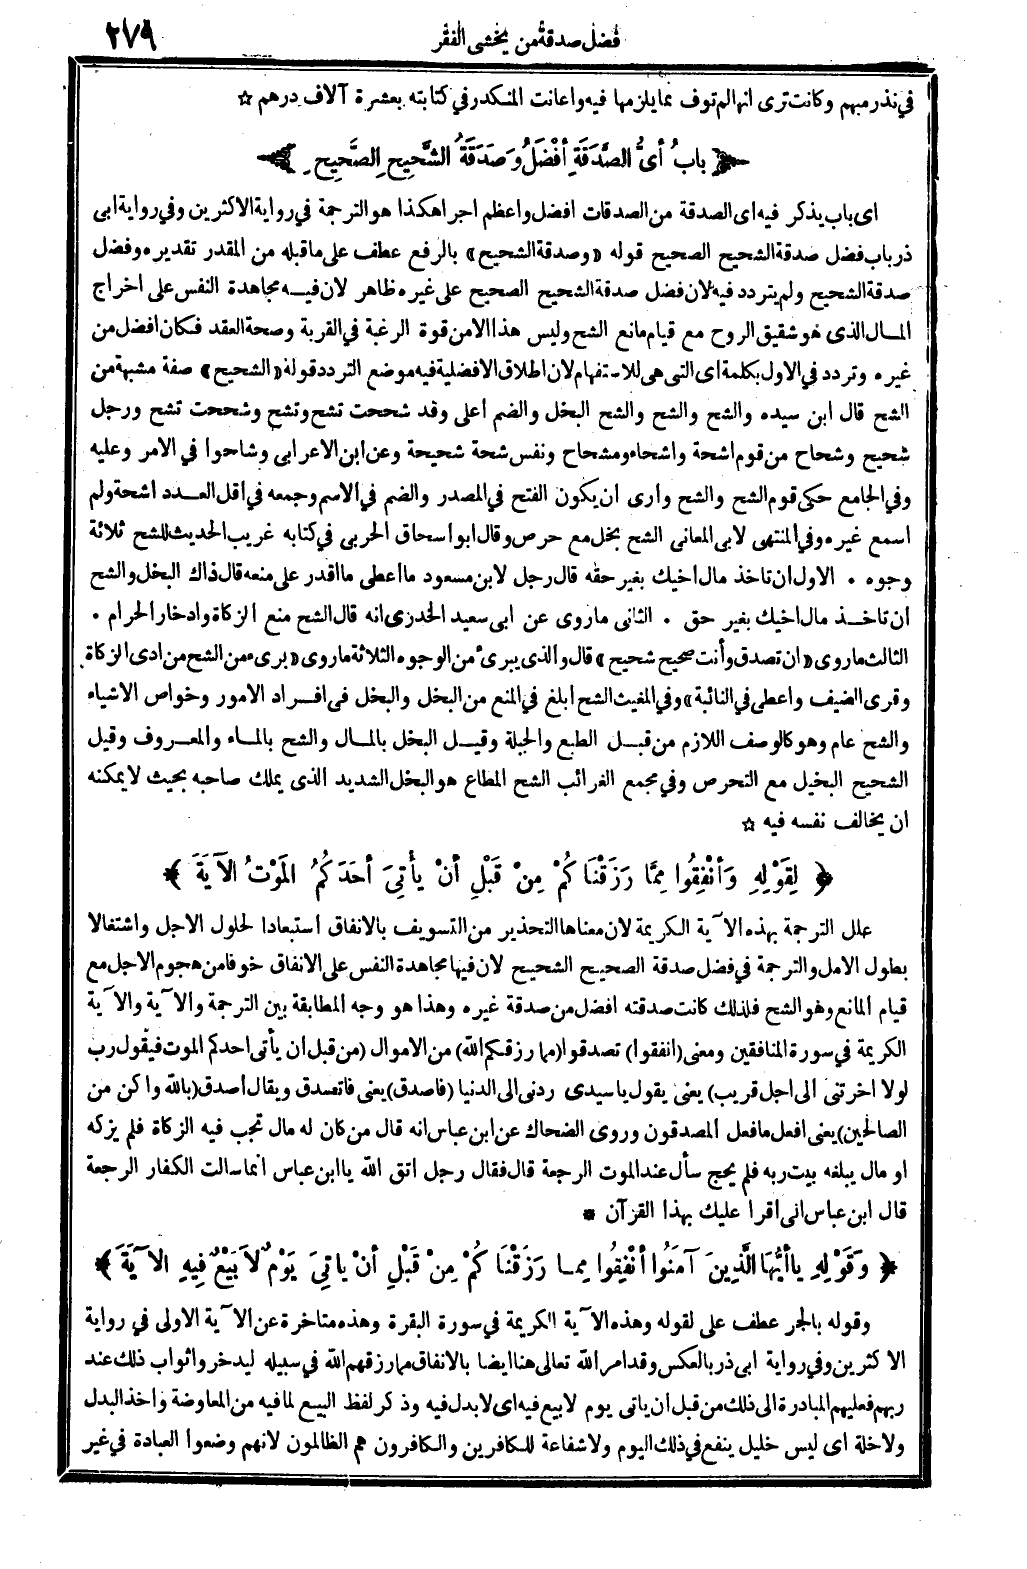 فضل صدقة من يخشى الفقر ٢٧٩
في نذر مبهم وكانت ترى انها لم توف بما يلزمها فيه واعانت المنكدر في كتابته بعشرة آلاف درهم ☆
﴿ بابُ أىُّ الصَّدَقَةِ أفْضَلُ وصَدَقَةُ الشَّحيحِ الصَّحيحِ ﴾
اى باب يذكر فيه اى الصدقة من الصدقات افضل واعظم اجرا هكذا هو الترجمة في رواية الاكثرين وفي رواية ابى
ذر باب فضل صدقة الشحيح الصحيح قوله «وصدقة الشحيح» بالرفع عطف على ما قبله من المقدر تقديره وفضل
صدقة الشحيح ولم يتردد فيه لان فضل صدقة الشحيح الصحيح على غيره ظاهر لان فيه مجاهدة النفس على اخراج
المال الذى هو شقيق الروح مع قيام مانع الشح وليس هذا الا من قوة الرغبة في القربة وصحة العقد فكان افضل من
غيره وتردد في الاول بكلمة اى التى هى للاستفهام لان اطلاق الافضلية فيه موضع التردد قوله «الشحيح» صفة مشبهة من
الشح قال ابن سيده والشح والشح والشح البخل والضم أعلى وقد شححت تشح وتشح وشححت تشح ورجل
شحيح وشحاح من قوم اشحة واشحاء وشحاح ونفس شحة شحيحة وعن ابن الاعرابى وشاحوا في الامر وعليه
وفي الجامع حكى قوم الشح والشح وأرى ان يكون الفتح في المصدر والضم في الاسم وجمعه في اقل العدد اشحة ولم
اسمع غيره وفي المنتهى لابى المعانى الشح بخل مع حرص وقال ابو اسحاق الحربى في كتابه غريب الحديث للشح ثلاثة
وجوه . الاول ان تاخذ مال اخيك بغير حقه قال رجل لابن مسعود ما اعطى ما اقدر على منعه قال ذاك البخل والشح
ان تاخذ مال اخيك بغير حق . الثانى ماروى عن ابى سعيد الخدرى انه قال الشح منع الزكاة وادخار الحرام .
الثالث ماروى «ان تصدق وأنت صحيح شحيح» قال والذى يبرئ من الوجوه الثلاثة ماروى «برىء من الشح من ادى الزكاة
وقرى الضيف واعطى في النائبة» وفي المغيث الشح ابلغ في المنع من البخل والبخل فى افراد الامور وخواص الاشياء
والشح عام وهو كالوصف اللازم من قبل الطبع والجبلة وقيل البخل بالمال والشح بالماء والمعروف وقيل
الشحيح البخيل مع التحرص وفي مجمع الغرائب الشح المطاع هو البخل الشديد الذى يملك صاحبه بحيث لا يمكنه
ان يخالف نفسه فيه ☆
﴿ لِقَوْلِهِ وَأنْفِقُوا مِمَّا رَزَقْنَاكُمْ مِنْ قَبْلِ أنْ يأْتِىَ أحَدَكُمُ المَوْتُ الآيَةَ ﴾
علل الترجمة بهذه الآية الكريمة لان معناها التحذير من التسويف بالانفاق استبعادا لحلول الاجل واشتغالا
بطول الامل والترجمة في فضل صدقة الصحيح الشحيح لان فيها مجاهدة النفس على الانفاق خوفا من هجوم الاجل مع
قيام المانع وهو الشح فلذلك كانت صدقته افضل من صدقة غيره وهذا هو وجه المطابقة بين الترجمة والآية والآية
الكريمة في سورة المنافقين ومعنى (انفقوا) تصدقوا (مما رزقكم الله) من الاموال (من قبل ان يأتى احدكم الموت فيقول رب
لولا اخرتنى الى اجل قريب) يعنى يقول يا سيدى ردنى الى الدنيا (فاصدق) يعنى فاتصدق ويقال أصدق (بالله واكن من
الصالحين) يعنى افعل ما فعل المصدقون وروى الضحاك عن ابن عباس انه قال من كان له مال تجب فيه الزكاة فلم يزكه
او مال يبلغه بيت ربه فلم يحج سأل عند الموت الرجعة قال فقال رجل اتق الله يا ابن عباس انما سالت الكفار الرجعة
قال ابن عباس انى اقرا عليك بهذا القرآن *
﴿ وَقَوْلِهِ ياأيُّهَا الَّذِينَ آمَنُوا أنْفِقُوا مِما رَزَقْنَاكُمْ مِنْ قَبْلِ أنْ ياتِىَ يَوْمٌ لاَ بَيْعٌ فِيهِ الآيَةَ ﴾
وقوله بالجر عطف على لقوله وهذه الآية الكريمة في سورة البقرة وهذه متاخرة عن الآية الاولى في رواية
الاكثرين وفي رواية ابى ذر بالعكس وقد امر الله تعالى هنا ايضا بالانفاق مما رزقهم الله في سبيله ليدخر واثواب ذلك عند
ربهم فعليهم المبادرة الى ذلك من قبل ان ياتى يوم لا بيع فيه اى لا بدل فيه وذكر لفظ البيع لما فيه من المعاوضة واخذ البدل
ولا خلة اى ليس خليل ينفع في ذلك اليوم ولا شفاعة للكافرين والكافرون هم الظالمون لانهم وضعوا العبادة في غير